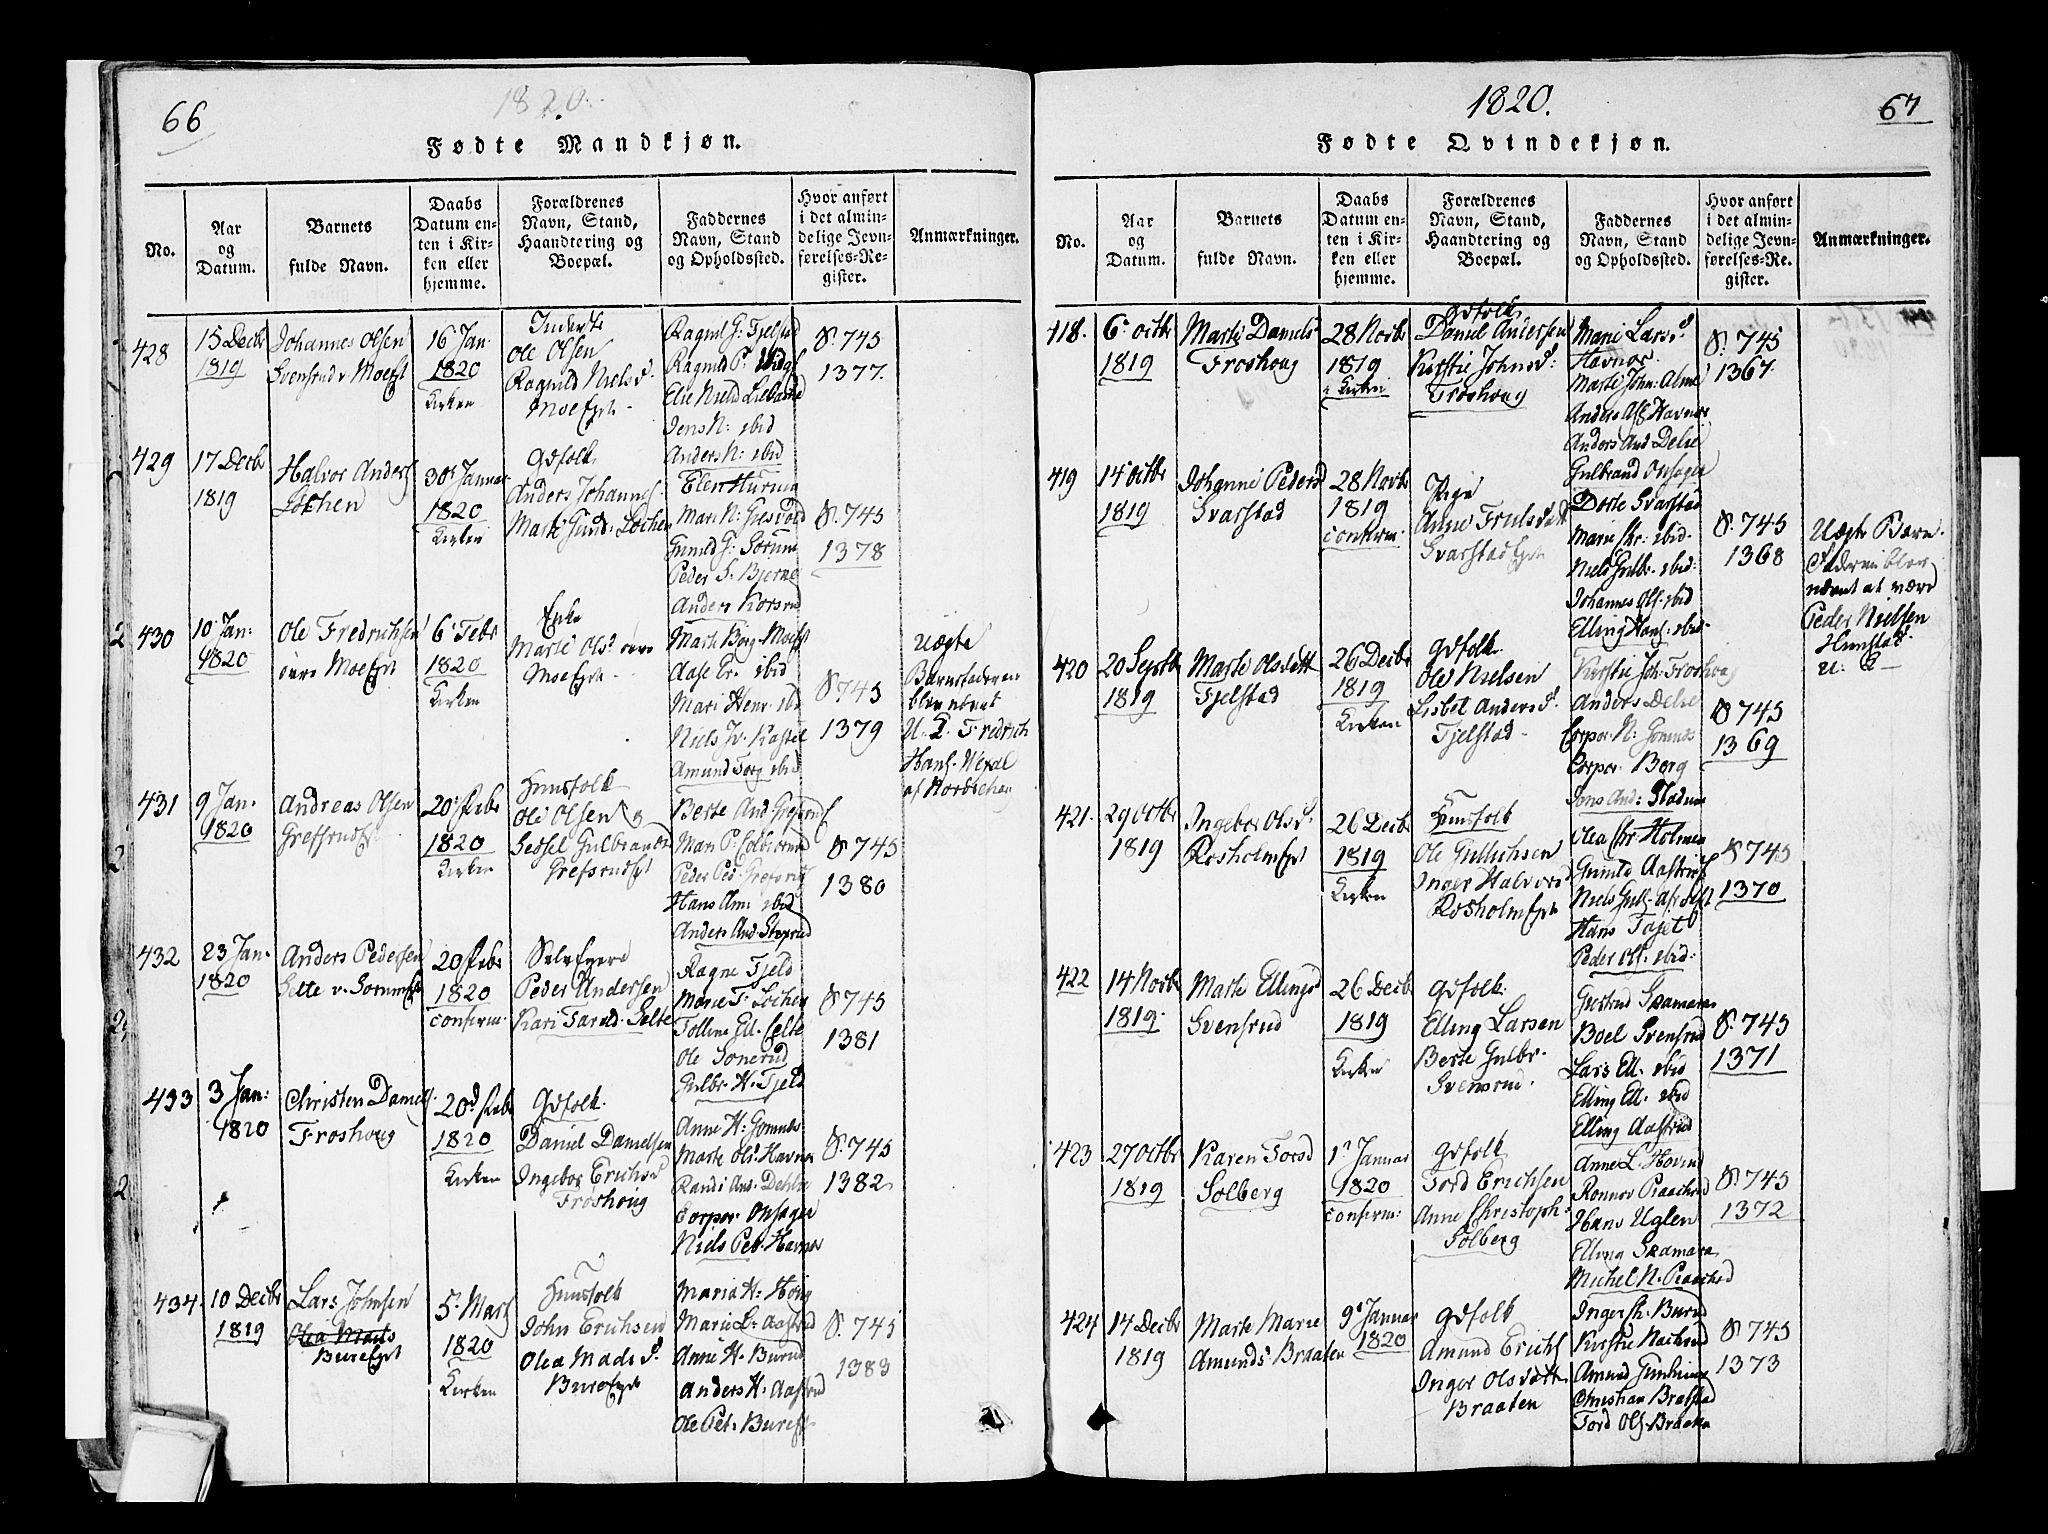 66
1820.
Fødte Mandkjøn.
No.
Aar
og
Datum.
Barnets
fulde Navn.
Daabs
Datum en-
ten i Kir-
ken eller
hjemme.
Forældrenes
Navn, Stand,
Haandtering og
Boepæl.
Faddernes
Navn, Stand
og Opholdssted.
Hvor anført
i det almin-
delige Jevn-
førelses-Re-
gister.
Anmærkninger.
428
15 Decbr
1819
Johannes Olsen
Svensrud v Moeft
16 Jan
1820
Kirken
Inderste
Ole Olsen
Ragnild Nielsd.
Moeept.
Ragnil G: Tjelstad
Ragnild P.
Elie Nield
Jens N: ibid
Anders N: ibid
S. 745
1377.
429
17 Decbr
1819
Halvor Anders
Løchen
30 Januar
1820
Kirken
Gdfolk
Anders Johannes
Marte Gund: Løchen
Elen Hurum
Mari N: Giesvold
Gunild G: Sørum
Peder S. Bjerne
Anders Korsrud
S. 745
1378
430
10 Jan:
1820
Ole Fredrichsen
øvre Moeept
6 Febr
1820
Kirken
Enke
Marte Olsd øvre
Moeept.
Marte Borg Moeft
Aase Er. ibid
Mari Henr. ibid
Niels Jv. Kastel
Amund Torg ibid
S 745
1379
Uægte
Barnefaderen
blev nævnt
U. C. Fredrich
Hans. Wexel
af Nordrehaug
431
9 Jan.
1820
Andreas Olsen
Grefsrud
20 Febr
1820
Kirken
Huusfolk
Ole Olsen og
Sessel Gulbrandsd
Grefsrudept
Berte And. Grefsrud
Mari P.
Peder Ped. Grefsrud
Hans Am ibid
Anders And
S 745
1380
432
23 Jan.
1820
Anders Pedersen
Selte v. Sorum
20 Febr
1820
confirm:
Selveyere
Peder Andersen
Kari Tarald. Selte
Ragne Tjeld
Marie T. Lochen
Tolline Ell. Selte
Ole Sonerud
Gulbr. H. Tjeld
S 745
1381
433
3 Jan:
1820
Christen Daniels.
Froshoug
20d Febr
1820
Kirken
Gdfolk
Daniel Danielsen
Ingebor Erichsd
Froshoug
Anne H: Gomnes
Marte Ols. Havnor
Randi And. Dehle
Corpor. Onsager
Niels Pet. Havnor
S. 745
1382
434.
10 Decbr
1819
Lars Johnsen
Olea Mads
Bureept
5. Marts
1820
Kirken
Huusfolk
John Erichsen
Olea Madsd.
Bureept
Maria H: Houg
Marie L. Aastrud
Anne H. Burud
Anders H. Aastrud
Ole Pet. Bureft
S. 745
1383
1820.
67
Fødte Qvindekjøn.
No.
Aar
og
Datum.
Barnets
fulde Navn.
Daabs
Datum en-
ten i Kir-
ken eller
hjemme.
Forældrenes
Navn, Stand,
Haandtering og
Boepæl.
Faddernes
Navn, Stand
og Opholdssted.
Hvor anført
i det almin-
delige Jevn-
førelses-Re-
gister.
Anmærkninger.
418.
6 octbr
1819
Marte Daniels
Froshoug
28 Novbr
1819
i Kirken
Gdfolk
Daniel Andersen
Kirstie Johnsd:
Froshoug
Marie Larsd
Havnor
Marte John: Alme
Anders Af Havnor
Anders And Delie
S. 745
1367.
419
14 octbr
1819
Johanne Pedersd
Svarstad
28 Novbr
1819
confirm:
Pige
Anne Trulsdatt
Svarstadept
Gulbrand Onsager
Dorte Svarstad
Marie Chr: ibid.
Niels Gulbr. ibid.
Johannes Ols. ibid
Elling Hans. ibid.
S. 745
1368
Uægte Barn.
Faderen blev
nævnt at være
Peder Nielsen
Hunstad
420
20 Septbr
1819
Marte Olsdatt
Tjelstad
26 Decbr
1819
Kirken
Gdfolk
Ole Nielsen
Lisbet Andersd.
Tjelstad
Kirstie Joh. Froshoug
Anders Delie
Corpor. N: Gomnes
Corpor. Borg
Jens And:
S 745
1369
421.
29 Octbr
1819
Ingebor Olsd.
Rosholmept
26 Decbr
1819
Kirken
Huusfolk
Ole Gullichsen
Inger Halvors
Rosholmept
Olea Chr Holmen
Gunild Aastrud
Niels Gul.
Hans Fajet
Peder Ols. ibid.
S 745
1370
422
14 Novbr
1819.
Marte Ellingsd
Svensrud
26 Decbr
1819
Kirken
Gdfolk.
Elling Larsen
Berte Gulbr.
Svensrud.
Gertrud Skamaren
Boel Svensrud
Lars Ell. ibid
Elling Ell. ibid
Elling Aastrud
S. 745
1371
423
27 octbr
1819
Karen Torsd
Solberg
1 Januar
1820
confirm:
Gdfolk
Tord Erichsen
Anne Christoph.
Solberg
Anne L. Hovind
Ronnor Praastrud
Hans Uglen
Elling Skamaren
Michel N. Praastrud
S 745
1372
424
14 Decbr
1819
Marte Marie
Amunds Braaten
9 Januar
1820
Gdfolk
Amund Erichs
Inger Olsdatt
Braaten
Inger Ch. Burud
Kirstie Nachrud
Amund
Christian
Tord Ols. Braaten
S 745
1373